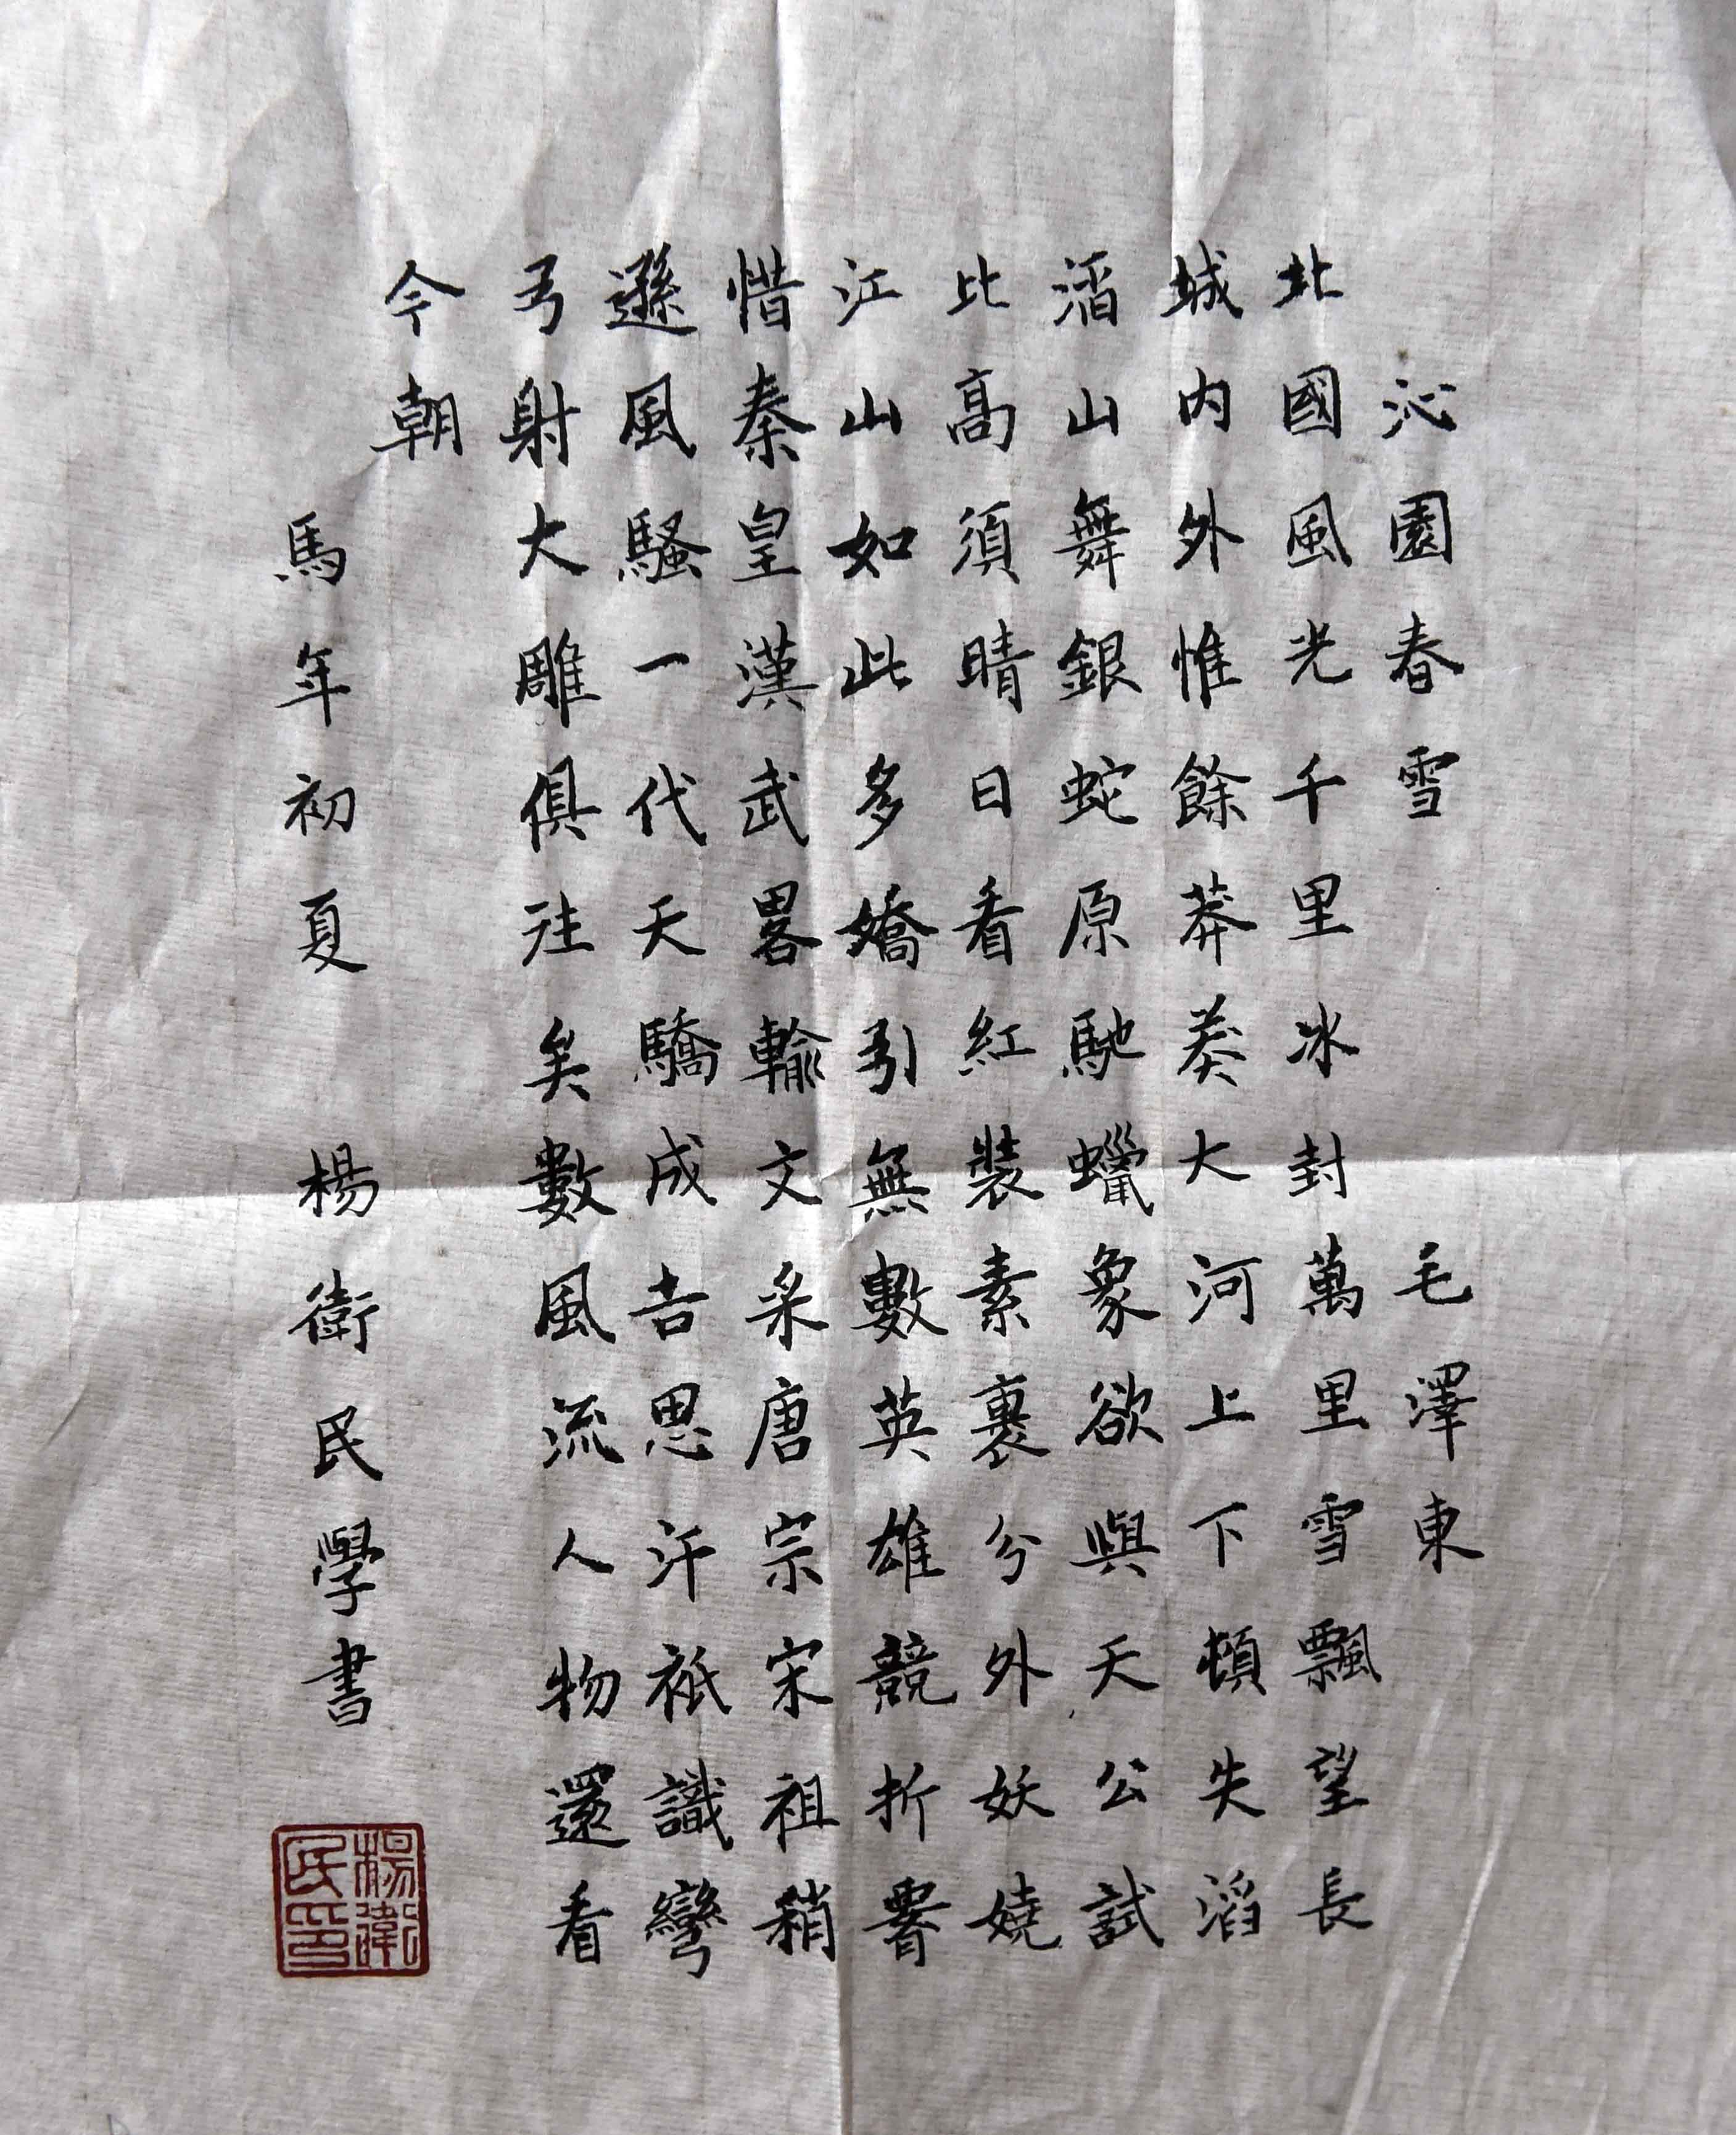 沁園春雪 毛澤東
北國風光千里冰封萬里雪飄望長
城内外惟餘莽莽大河上下頓失滔
滔山舞銀蛇原馳蠟象欲與天公試
比高須晴日看紅裝素裹分外妖嬈
江山如此多嬌引無數英雄競折腰
惜秦皇漢武畧輸文采唐宗宋祖稍
遜風騷一代天驕成吉思汗祇識彎
弓射大雕俱往矣數風流人物還看
今朝
馬年初夏 楊衛民學書
楊衛民印